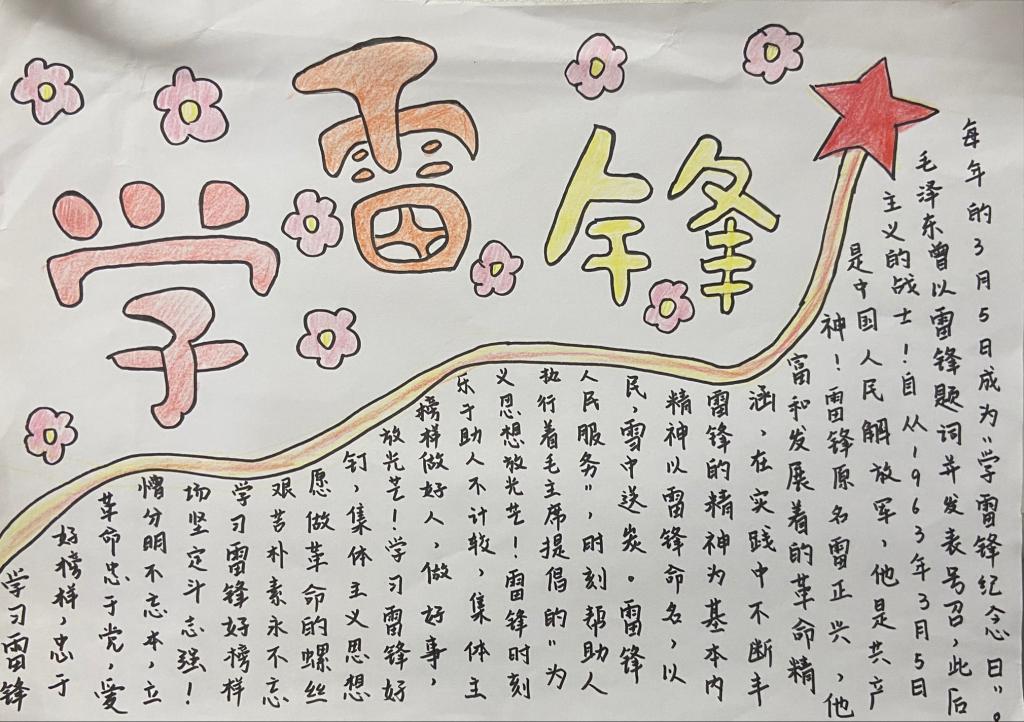 学雷锋
学习雷锋
好榜样，忠于
革命忠于党，爱
憎分明不忘本，立
场坚定斗志强！
学习雷锋好榜样
艰苦朴素永不忘
愿做革命的螺丝
钉，集体主义思想
放光芒！学习雷锋好
榜样做好人，做好事，
乐于助人不计较，集体主
义思想放光芒！雷锋时刻
执行着毛主席提倡的“为
人民服务”，时刻帮助人
民，雪中送炭。雷锋
精神以雷锋命名，以
雷锋的精神为基本内
涵、在实践中不断丰
富和发展着的革命精
神！雷锋原名雷正兴，他
是中国人民解放军，他是共产
主义的战士！自从1963年3月5日
毛泽东曾以雷锋题词并发表号召，此后
每年的3月5日成为“学雷锋纪念日”。